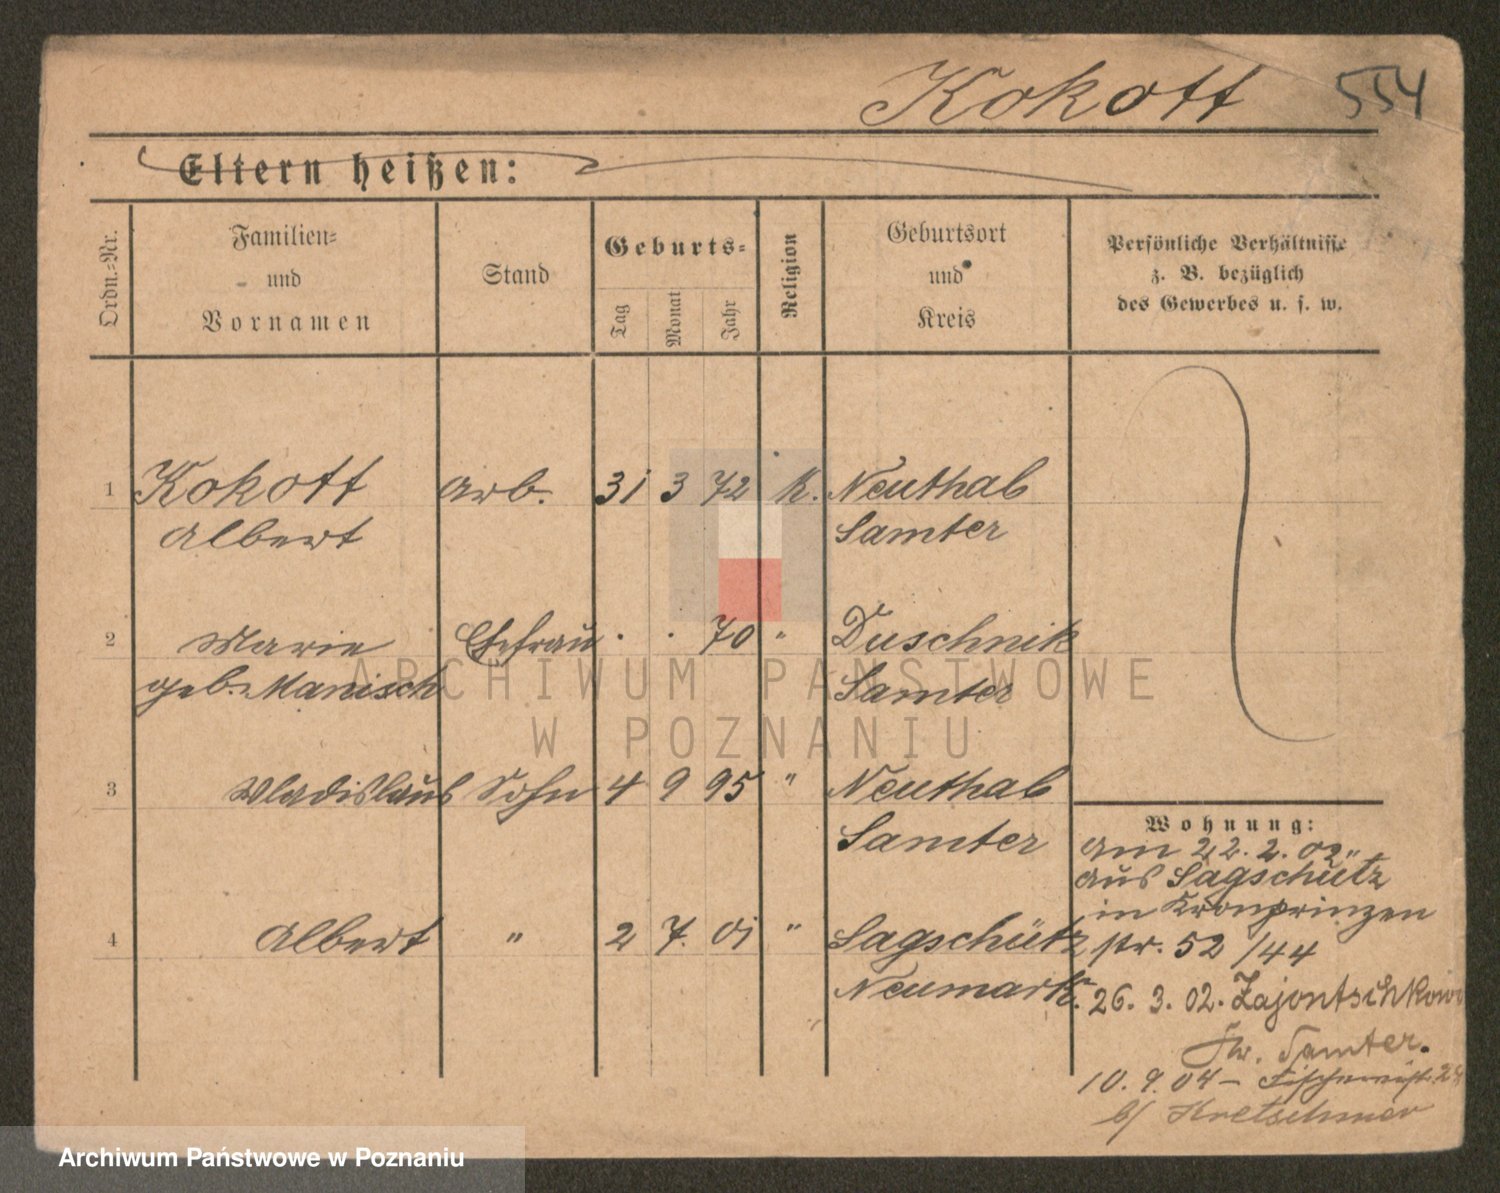 Kokott 554
Eltern heißen:
Ordn.-Nr.
Familien-
und
Vornamen
Stand
Geburts-
Tag Monat Jahr
Religion
Geburtsort
und
Kreis
Persönliche Verhältnisse
z. B. bezüglich
des Gewerbes u. s. w.
1 Kokott Arb. 31 3 72 k. Neuthal
Albert Samter
2 Marie Ehefrau · · 70 " Duschnik
geb. Manisch Samter
3 Wladislaus Sohn 4 9 95 " Neuthal
Samter
4 Albert " 2 7. 01 " Sagschütz
Neumark.
Wohnung:
am 22.2.02
aus Sagschütz
in Kronprinzen
str. 52/44
26. 3. 02. Zajontschkowo
Kr. Samter.
10.9.04 –
b/ Kretschmer
ARCHIWUM PAŃSTWOWE
W POZNANIU
Archiwum Państwowe w Poznaniu